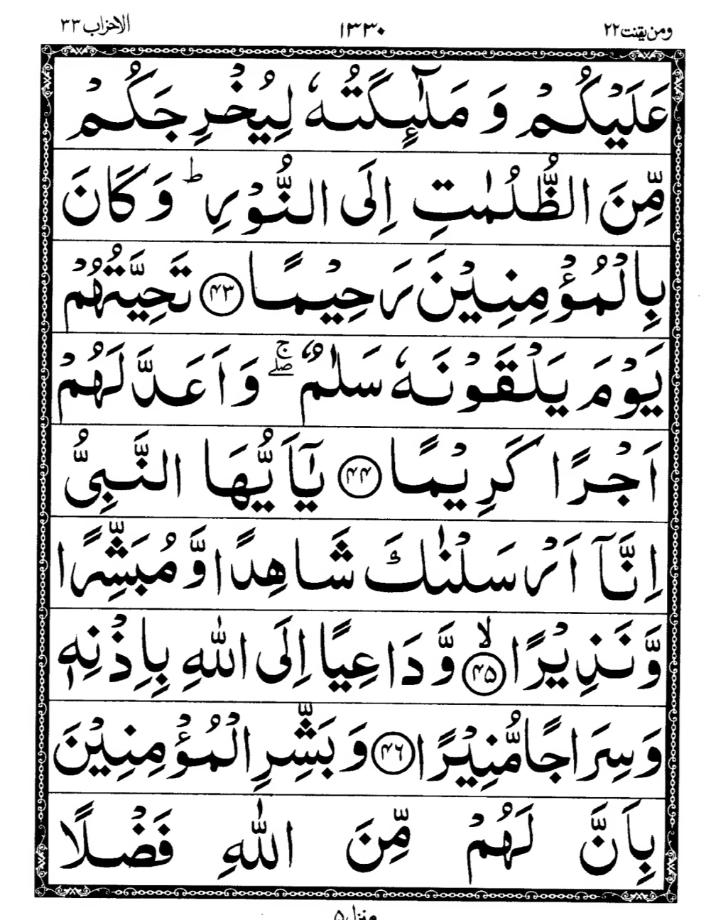 ومن يقنت ٢٢ ١٣٣٠ الاحزاب ٣٣
عَلَيْكُمْ وَ مَلٰٓئِكَتُهٗ لِيُخْرِجَكُمْ
مِّنَ الظُّلُمٰتِ اِلَى النُّوْرِ ؕ وَ كَانَ
بِالْمُؤْمِنِيْنَ رَحِيْمًا ﴿۴۳﴾ تَحِيَّتُهُمْ
يَوْمَ يَلْقَوْنَهٗ سَلٰمٌ ۖۚ وَ اَعَدَّ لَهُمْ
اَجْرًا كَرِيْمًا ﴿۴۴﴾ يٰۤاَيُّهَا النَّبِىُّ
اِنَّاۤ اَرْسَلْنٰكَ شَاهِدًا وَّ مُبَشِّرًا
وَّ نَذِيْرًا ۙ﴿۴۵﴾ وَّ دَاعِيًا اِلَى اللّٰهِ بِاِذْنِهٖ
وَ سِرَاجًا مُّنِيْرًا ﴿۴۶﴾ وَ بَشِّرِ الْمُؤْمِنِيْنَ
بِاَنَّ لَهُمْ مِّنَ اللّٰهِ فَضْلًا
منزل ۵